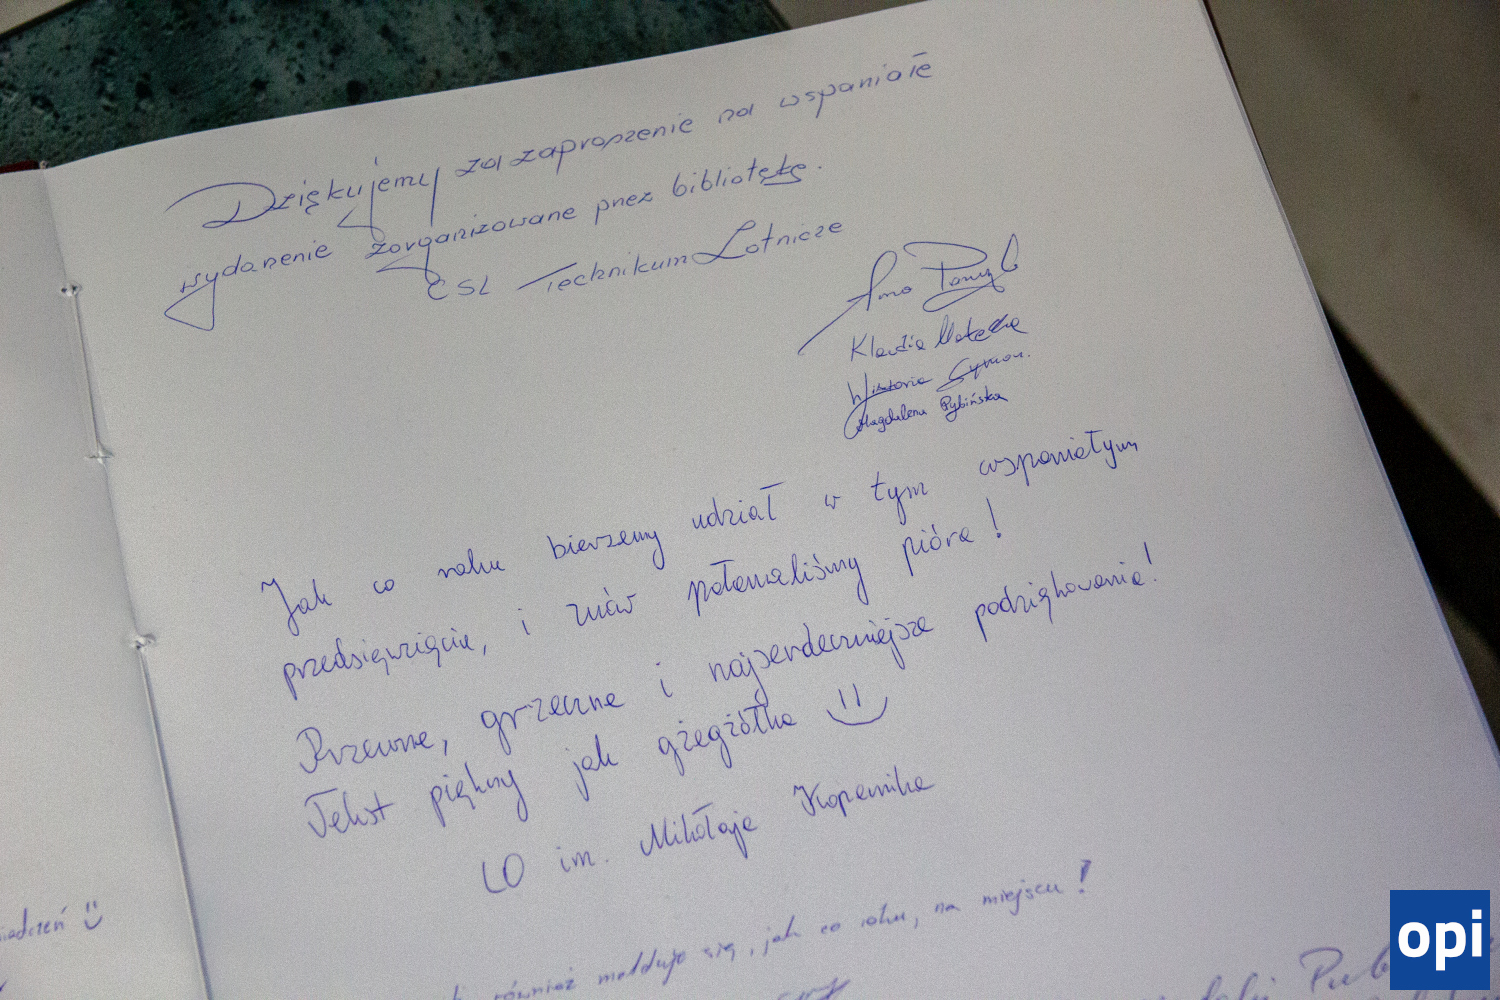 Dziękujemy za zaproszenie na wspaniałe
wydarzenie zorganizowane przez bibliotekę.
CSL Technikum Lotnicze
Klaudia Matecka
Wiktoria Szymon.
Magdalena Rybińska
Jak co roku bierzemy udział w tym wspaniałym
przedsięwzięciu, i znów połamaliśmy pióra!
Rzewne, grzeczne i najserdeczniejsze podziękowania!
Tekst piękny jak gżegżółka
LO im. Mikołaja Kopernika
również melduje się, jak co roku, na miejscu!
opi